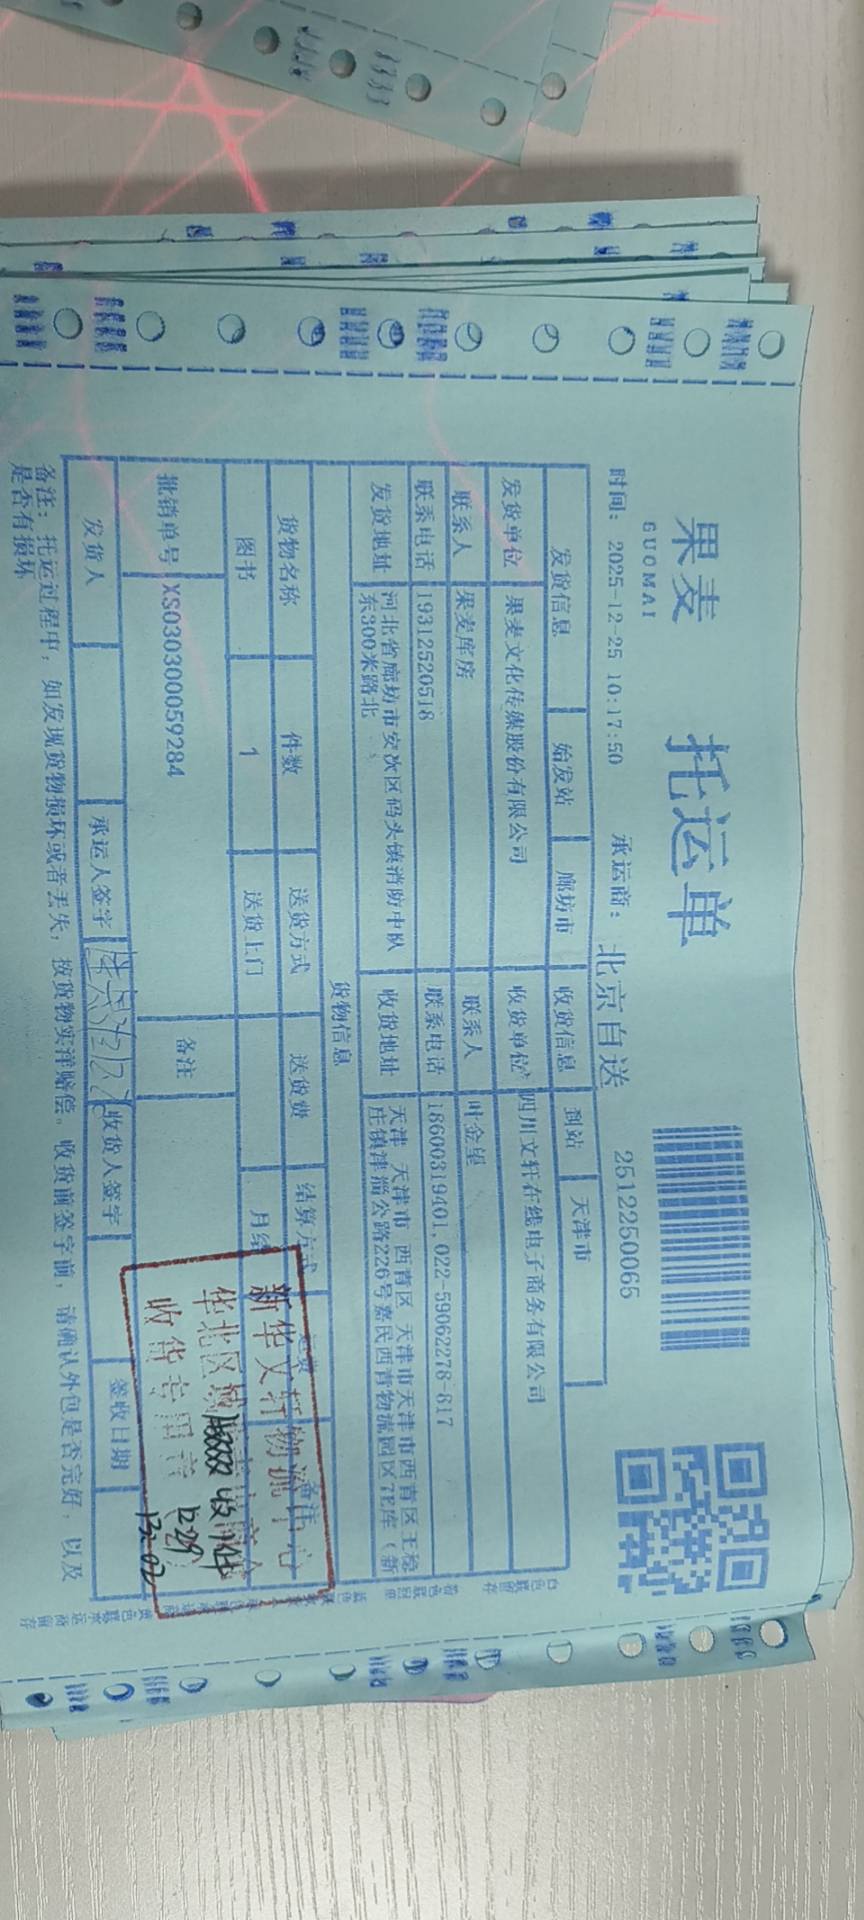 果麦
GUOMAI
托运单
2512250065
时间: 2025-12-25 10:17:50
承运商: 北京自送
发货信息 始发站 廊坊市 收货信息 到站 天津市
发货单位 果麦文化传媒股份有限公司 收货单位 四川文轩在线电子商务有限公司
联系人 果麦库房 联系人 叶金星
联系电话 19312520518 联系电话 18600319401,022-59062278-617
发货地址 河北省廊坊市安次区码头镇消防中队
东300米路北
收货地址 天津 天津市 西青区 天津市天津市西青区王稳
庄镇津淄公路226号嘉民西青物流园区7E库（新
货物信息
货物名称 件数 送货方式 送货费 结算方式 备注
图书 1 送货上门 月结
批销单号 XS030300059284 备注
发货人 承运人签字 收货人签字 签收日期
备注: 托运过程中，如发现货物损坏或者丢失，按货物实洋赔偿。收货前签字前，请确认外包是否完好，以及
是否有损坏
新华文轩物流中心
华北区域
收货专用章
收1件
12.29
13:02
白色联留存